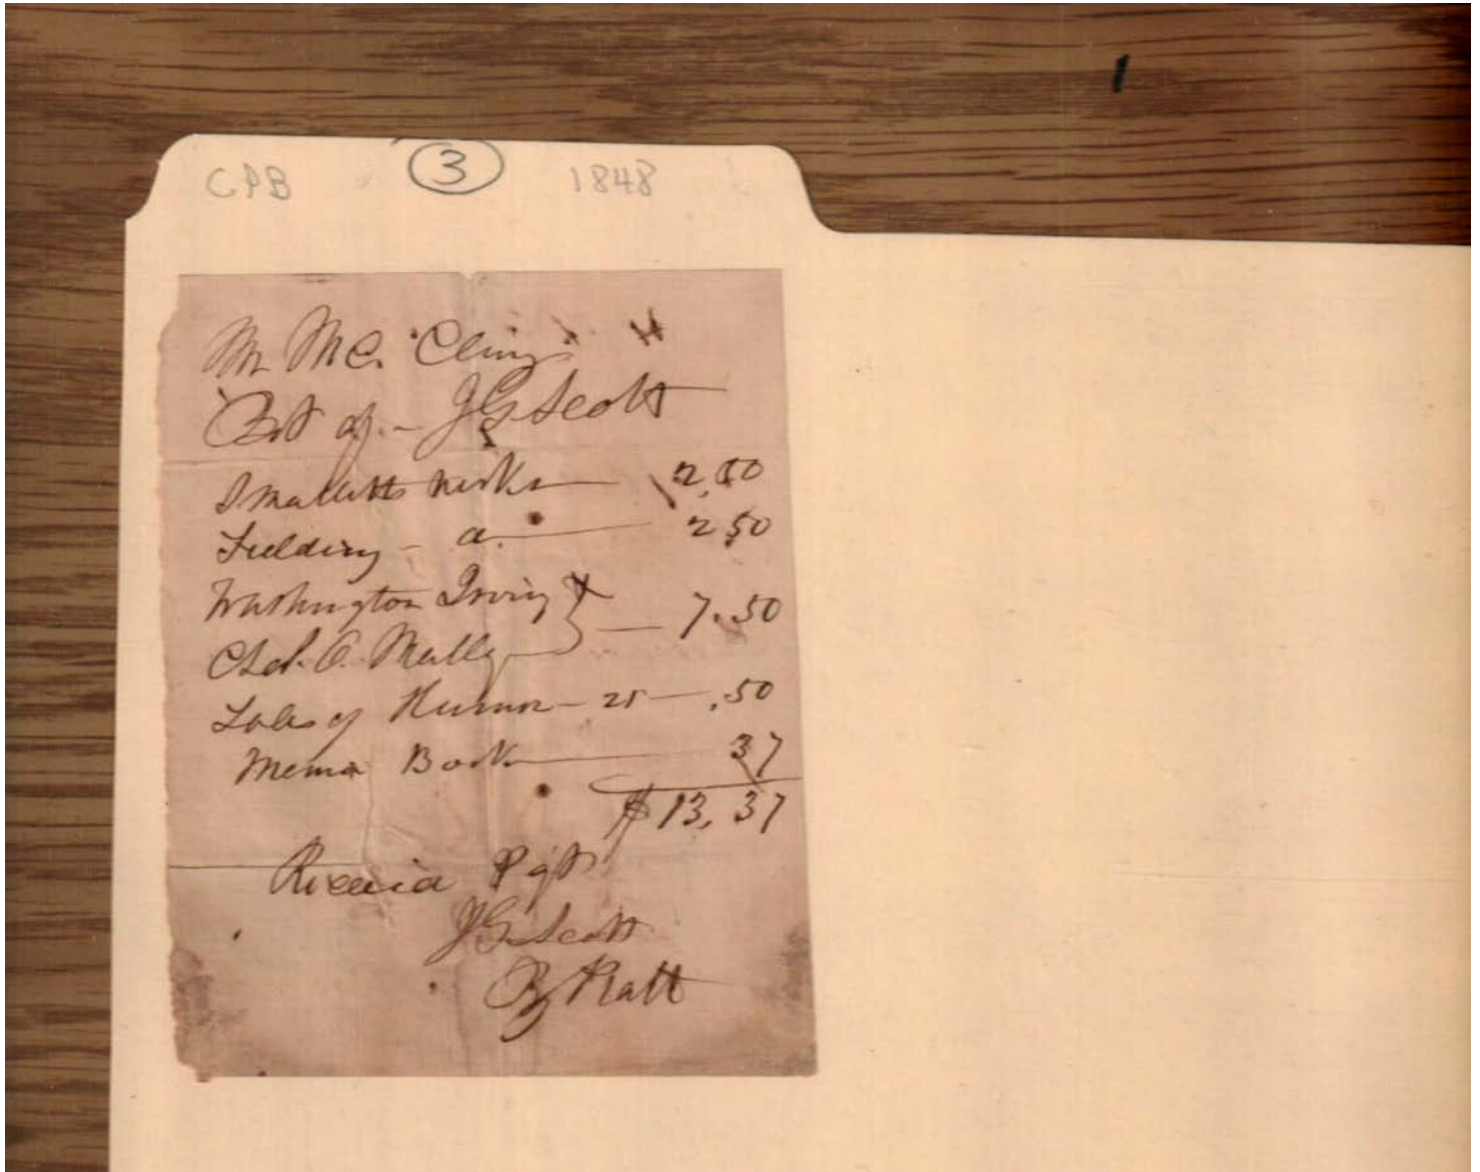 1
CPB 3 1848
Mr Mc.
Bot of - JG Scott
Smolletts works 2.50
Fielding - do 2 50
Washington Irving
Chs. O. Mally 7.50
Tales of Humor - 25 - .50
Memo Book 37
$13,37
Receivd Pyt
JG Scott
By Pratt